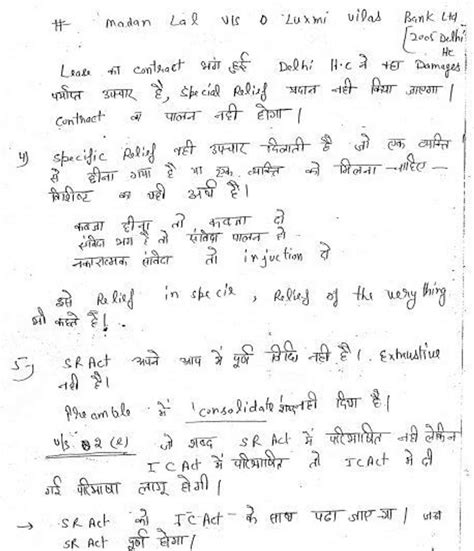 # Madan Lal V/S O Luxmi Vilas Bank Ltd
[2005 Delhi HC
Lease का contract भंग हुई Delhi H.C ने कहा Damages
पर्याप्त उपचार है, Special Relief प्रदान नही किया जाएगा |
Contract का पालन नही होगा |
4) specific Relief वही उपचार दिलाती है जो एक व्यक्ति
से छीना गया है या एक व्यक्ति को मिलना चाहिए
विशिष्ट का यही अर्थ है |
कब्जा छीना तो कब्जा दो
संविदा भंग है तो संविदा पालन हो
नकारात्मक संविदा तो injuction दो
इसे Relief in specie, Relief of the very thing
भी कहते है |
5) SR Act अपने आप में पूर्ण विधि नही है | Exhustive
नही है |
Preamble में 'consolidate शब्द नही दिया है |
U/S 2 (e) जो शब्द SR Act में परिभाषित नही लेकिन
ICAct में परिभाषित तो ICAct में दी
गई परिभाषा लागू होगी |
→ SR Act को ICAct के साथ पढा जाएगा | तब
SR Act पूर्ण होगा |